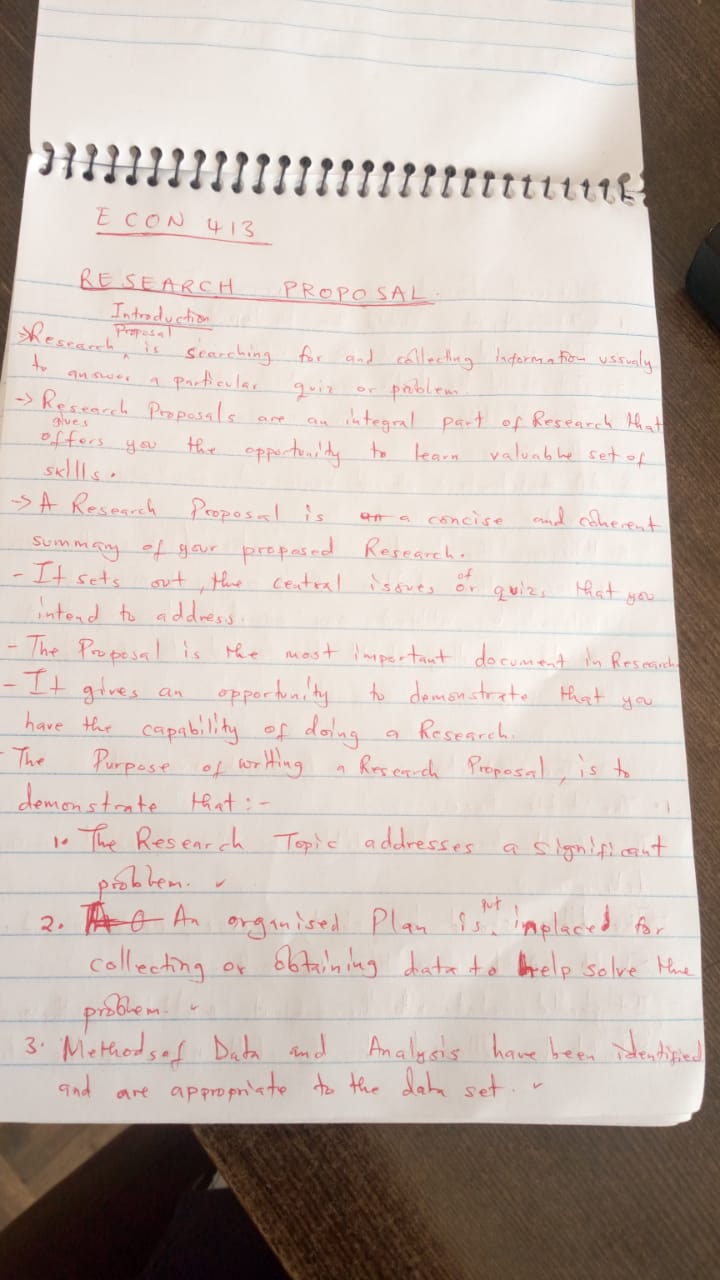 ECON 413
RESEARCH PROPOSAL.
Introduction
Proposal
→Research is searching for and collecting information ussualy
to answer a particular quiz or problem.
→ Research Proposals are an integral part of Research that
gives
offers you the opportunity to learn valuable set of
skills.
→ A Research Proposal is a concise and coherent
summary of your proposed Research.
- It sets out, the central issues of or quizs that you
intend to address.
- The Proposal is the most important document in Research
- It gives an opportunity to demonstrate that you
have the capability of doing a Research.
- The Purpose of writing a Research Proposal, is to
demonstrate that:-
1. The Research Topic addresses a significant
problem. ✓
2. An organised Plan is put inplaced for
collecting or obtaining data to help solve the
problem. ✓
3. Methods of Data and Analysis have been identified
and are appropriate to the data set. ✓